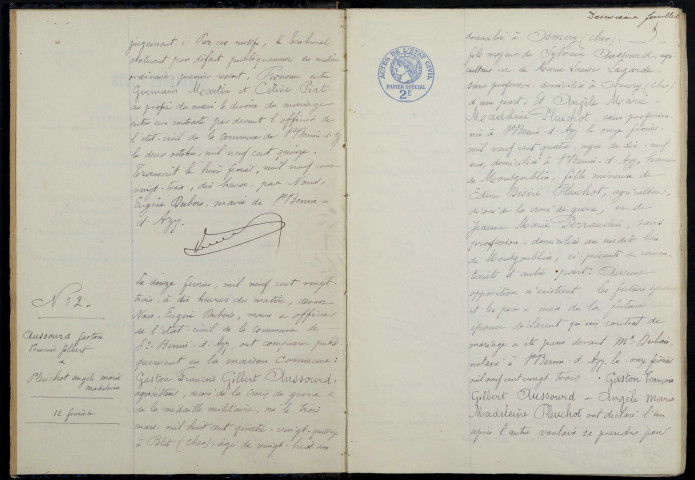 jugement. Par ces motifs, le Tribunal
statuant par défaut publiquement en matière
ordinaire, premier ressort, Prononce entre
Germain Mécartin et Céline Piat
au profit du mari le divorce du mariage
entre eux contracté par devant l'officier de
l'état civil de la commune de St Benin d'Azy
le deux octobre, mil neuf cent quinze.
Transcrit le huit février, mil neuf cent
vingt-trois, dix heures, par Nous,
Eugène Dubois, maire de St Benin-
d'Azy.
N° 2.
Aussourd Gaston
François Gilbert
&
Pleuchot Angèle Marie
Madeleine
12 février
Le douze février, mil neuf cent vingt-
trois, à dix heures du matin, devant
Nous Eugène Dubois, maire & officier
de l'état civil de la commune de
St Benin-d'Azy ont comparu publi-
quement en la maison Commune:
Gaston François Gilbert Aussourd,
agriculteur, décoré de la croix de guerre &
de la médaille militaire, né le trois
mars mil huit cent quatre-vingt-quatorze
à Blet (Cher), âgé de vingt-huit ans
Deuxième feuillet
domicilié à Osmery (Cher),
fils majeur de Sylvain Aussourd, agri-
culteur & de Marie Louise Lagarde,
sans profession, domiciliés à Osmery (Cher),
d'une part; Et Angèle Marie
Madeleine Pleuchot, sans profession,
née à St Benin-d'Azy le onze février
mil neuf cent quatre, âgée de dix-neuf
ans, domiciliée à St Benin-d'Azy, hameau
de Montgoublin, fille mineure de
Edme Désiré Pleuchot, agriculteur,
décoré de la croix de guerre, & de
Jeanne Marie, sans
profession, domiciliés au susdit lieu
de Montgoublin, ci-présents & consen-
tants d'autre part; Aucune
opposition n'existant les futurs époux
et les père & mère de la future
épouse déclarent qu'un contrat de
mariage a été passé devant Me Dubois,
notaire à St Benin-d'Azy, le onze février
mil neuf cent vingt trois. Gaston François
Gilbert Aussourd & Angèle Marie
Madeleine Pleuchot ont déclaré l'un
après l'autre vouloir se prendre pour
ACTES DE L'ÉTAT CIVIL
PAPIER SPÉCIAL
2F